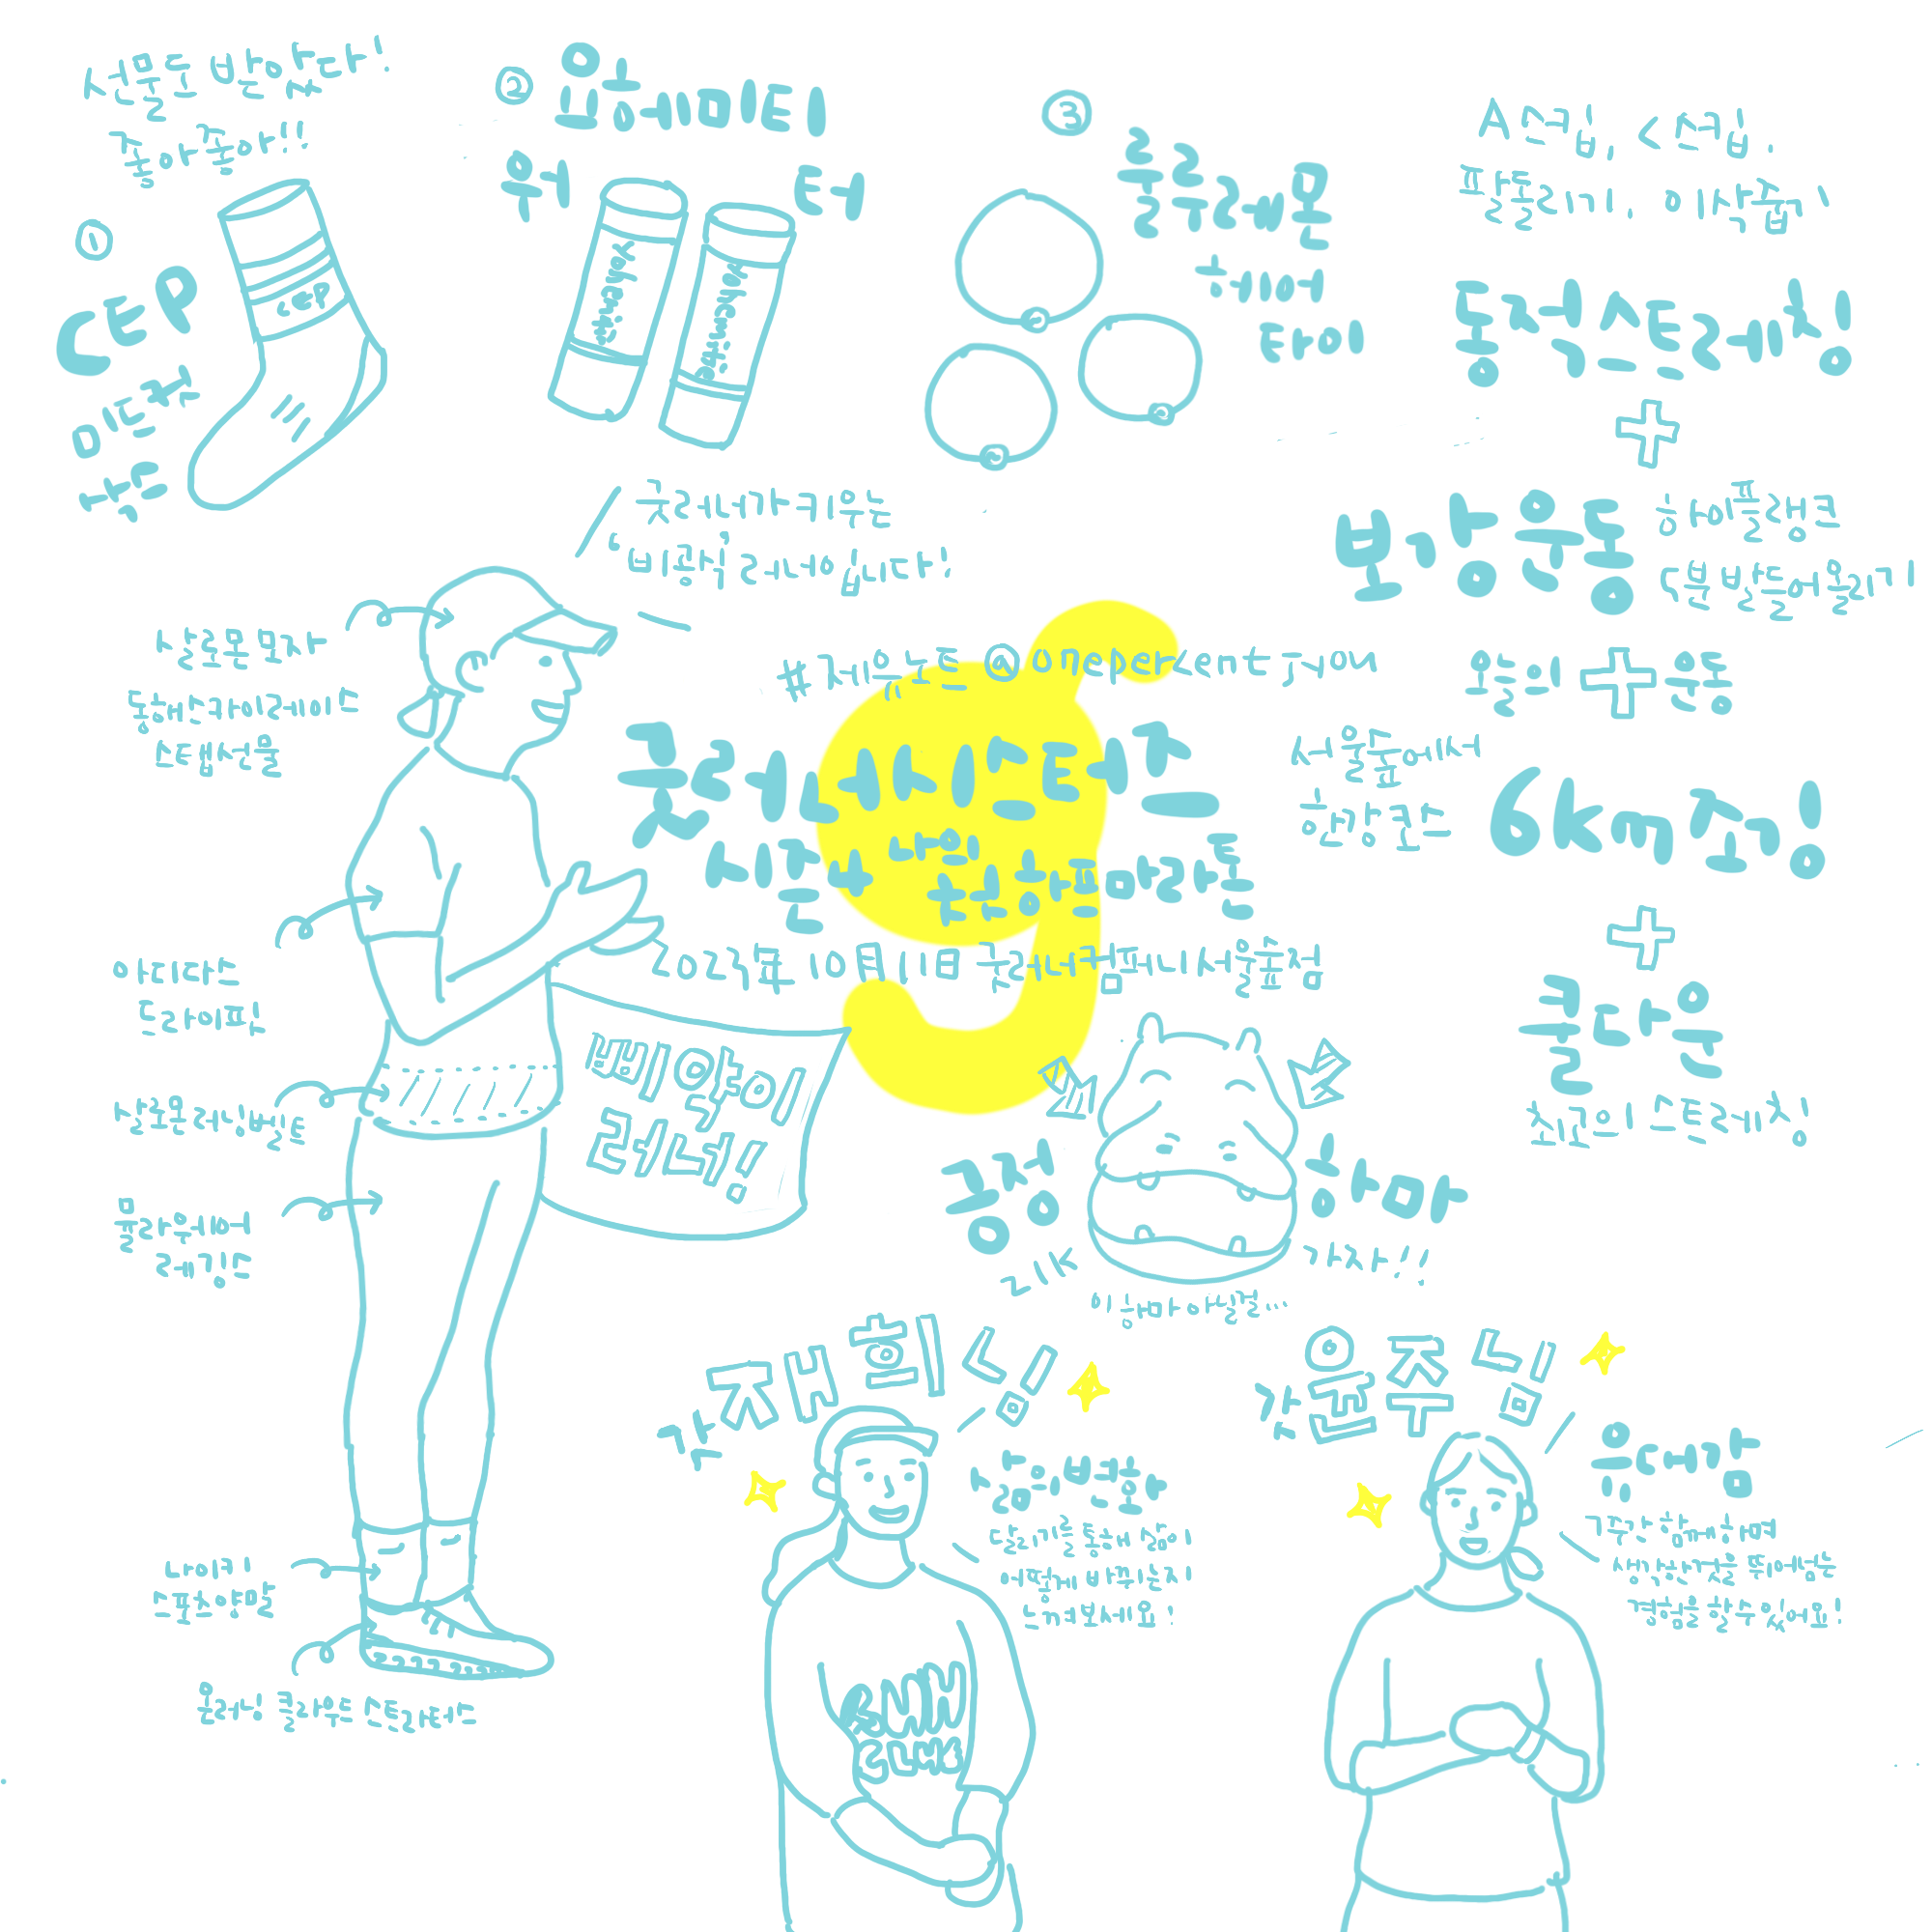 선물도 받았다!
좋아좋아!!
①
CEP
미드컷
양말
CEP
②
요헤미티
워
터
yohemite
yohemite
③
룰루레몬
헤어
타이
A스킵, C스킵,
팔돌리기, 이삭줍기
동적스트레칭
보강운동
하이플랭크
5분 발들어올리기
오늘의 운동
서울숲에서
한강코스
6km조깅
쿨다운
최고의 스트레칭!
굿러너가 키우는
'비공식' 러너입니다!
#제인노트 @onepercentjyou
굿러너 사이드스텝즈
시즌4 나의 첫 하프마라톤
2023年 10月 11日 굿러너컴퍼니 서울숲점
살로몬 모자
동해선라이즈레이스
스탭선물
아디다스
드라이팟
살로몬러닝벨트
뮬라웨어
레깅스
나이키
스포츠양말
온러닝 클라우드 스트라토스
빵양이
러닝
풍성
하마
21K
가자!!
이 하마 아실걸...
갓재희님
삶의 변화
달리기를 통해 삶이
어떻게 바뀌는지
느껴보세요!
RUN
2DAYS
갓윤주님
유대감
7주간 함께하며
생각한 것을 뛰어넘는
경험을 할 수 있어요!